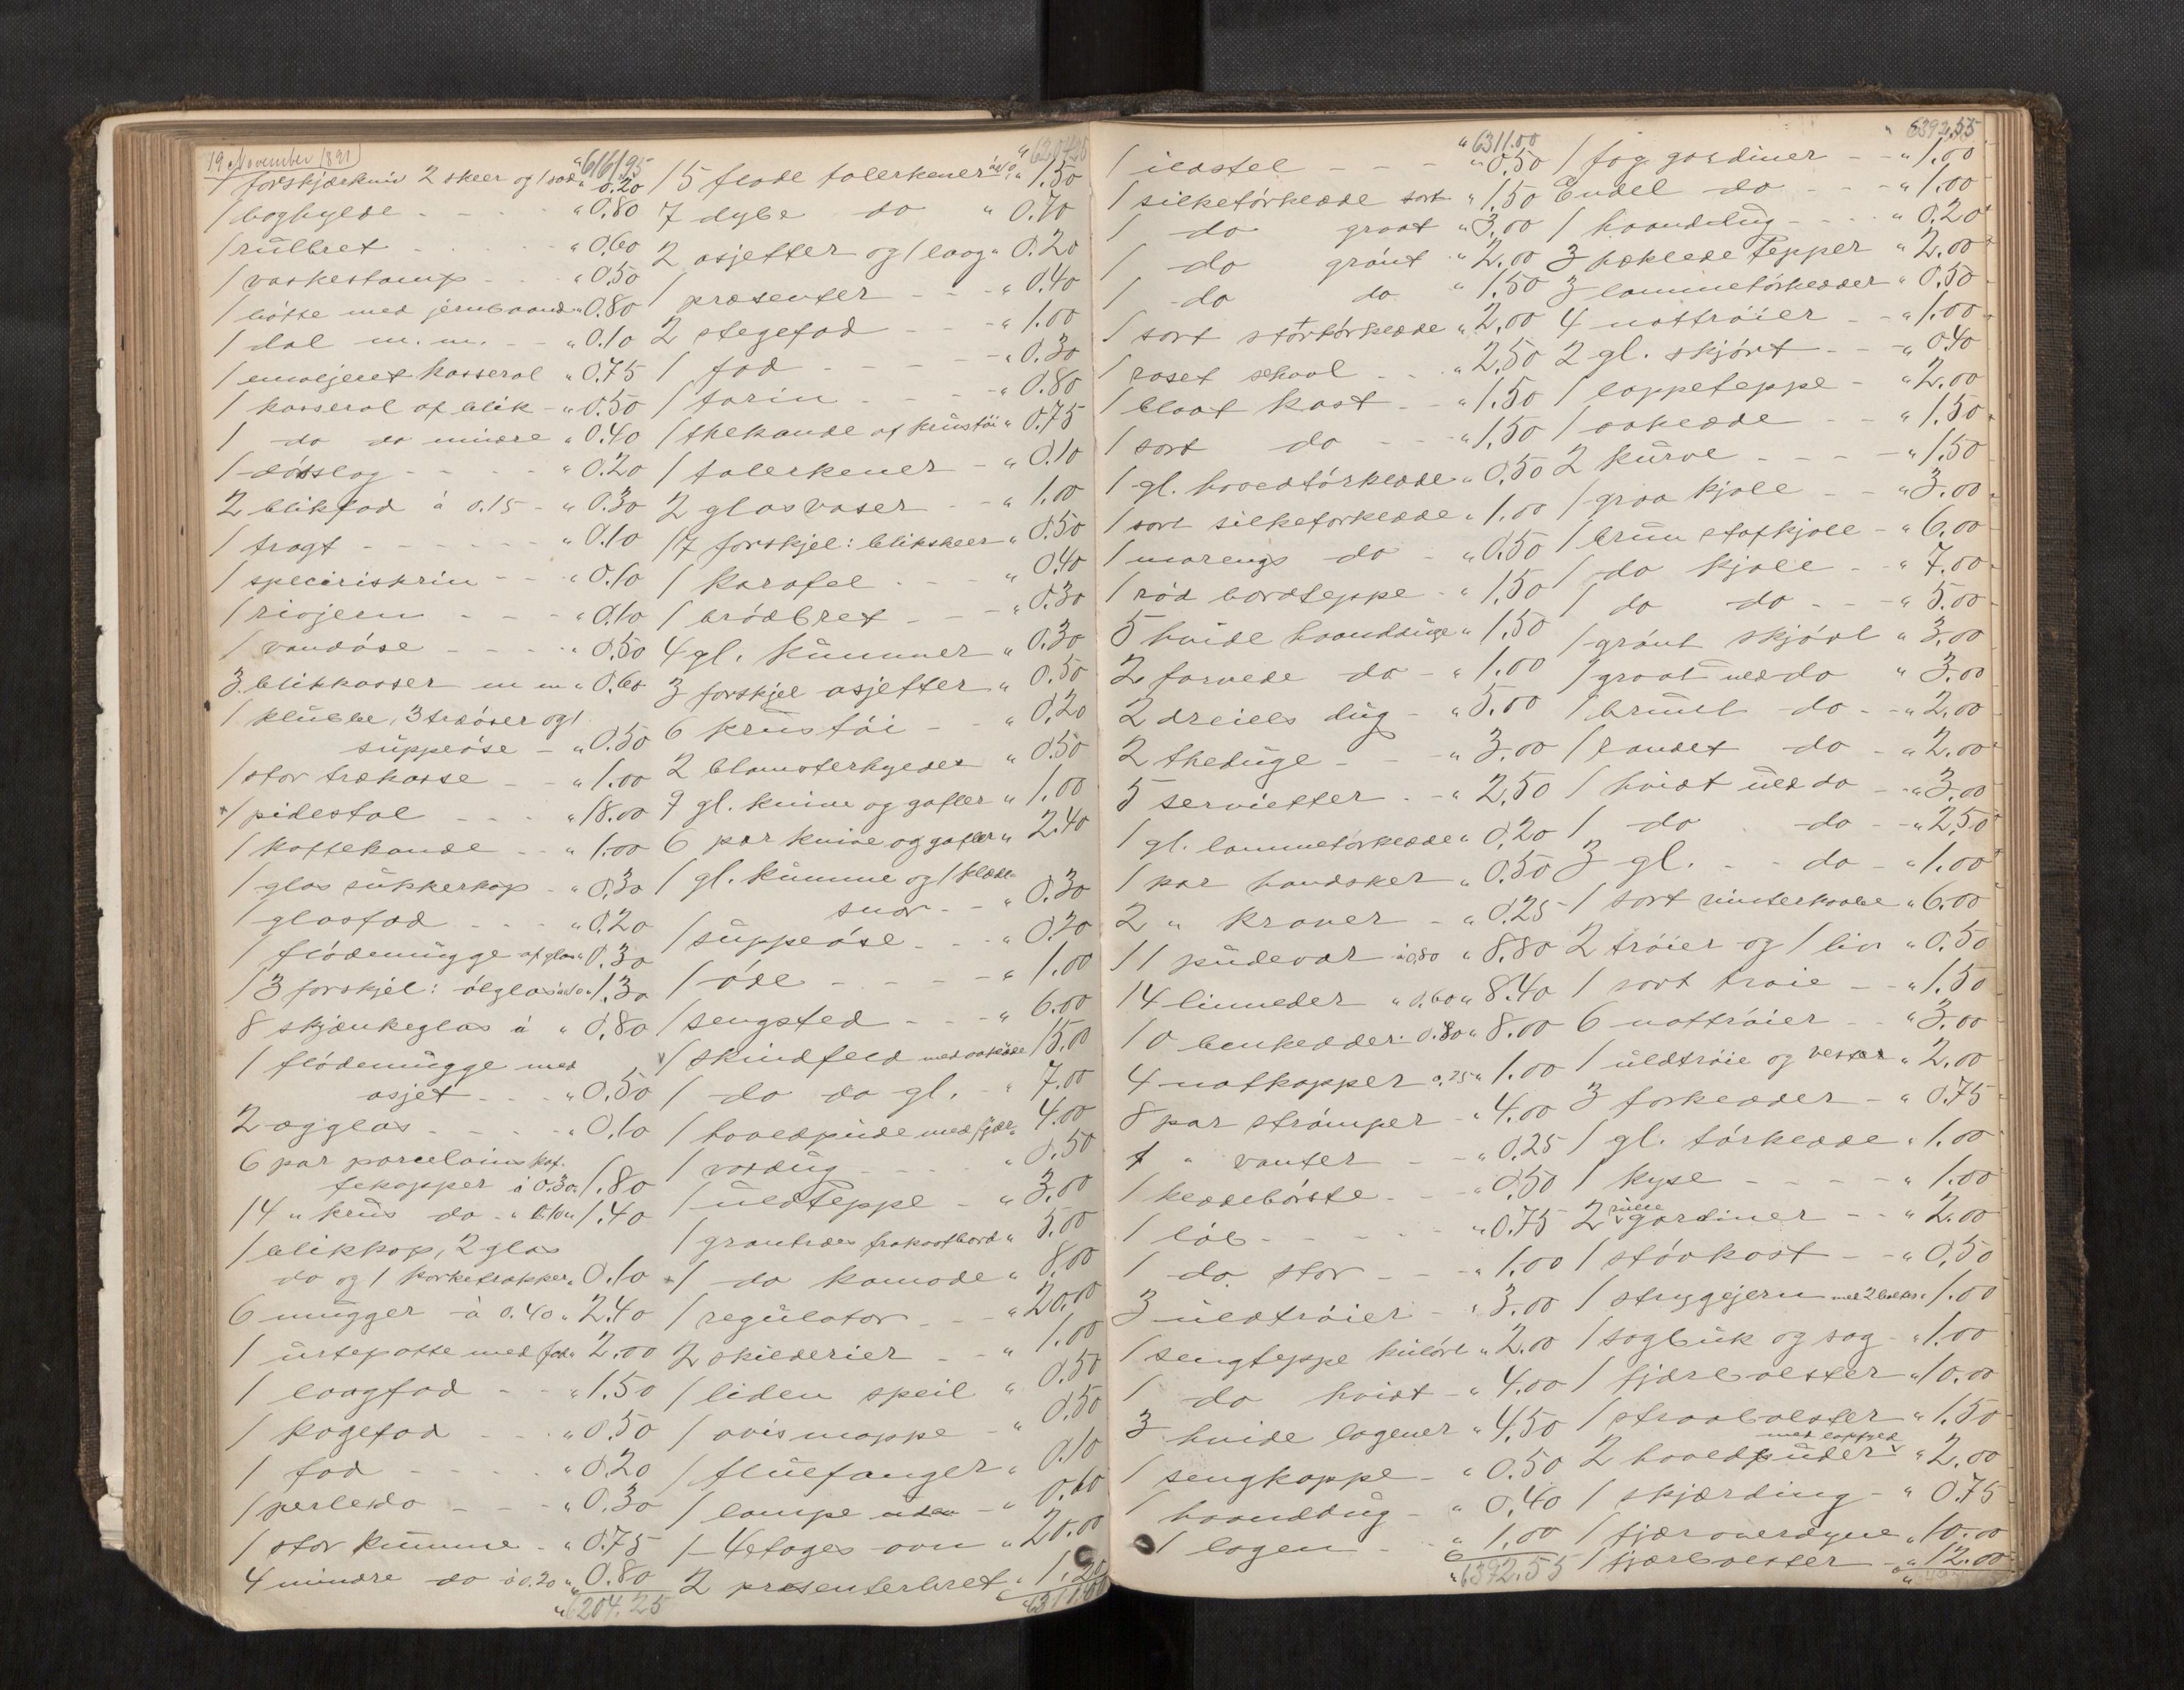 19 November 1891
" 6161.95
1 forskjærkniv 2 skeer og 1 sad " 0.20
1 boghylde - - - " 0.80
1 rulbret - - - " 0.60
1 vaskestamp - - " 0.50
1 bøtte med jernbaand " 0.80
1 dal m. m. - - " 0.10
1 emaljeret kasserol " 0.75
1 kasserol af blik - " 0.50
1 do do mindre " 0.40
1 dørslag - - - - " 0.20
2 blikfad à 0.15 - " 0.30
1 tragt - - - - - - " 0.10
1 speciriskrin - - " 0.10
1 rivjern - - - " 0.10
1 vandøse - - - " 0.50
3 blikkasser m m " 0.60
1 klubbe, 3 træøser og 1
suppeøse - " 0.50
1 stor trækasse - - " 1.00
+ 1 pidestal - - - " 18.00
1 kaffekande - - " 1.00
1 glas sukkerkop - " 0.30
1 glasfad - - - " 0.20
1 flødemugge af glas " 0.30
13 forskjel: ølglas à 0.10 " 1.30
8 skjænkeglas à " 0.80
1 flødemugge med
asjet - - - " 0.50
2 ægglas - - - - " 0.10
6 par porcelains kaf-
fekopper à 0.30 " 1.80
14 " krus do - " 0.10 " 1.40
1 blikkop, 2 glas
do og 1 korketrækker " 0.10
6 mugger à 0.40 " 2.40
1 urtepotte med fad " 2.00
1 laagfad - - " 1.50
1 kagefad - - - " 0.50
1 fad - - - - - " 0.20
1 perle do - - - " 0.30
1 stor kumme - " 0.75
4 mindre do à 0.20 " 0.80
" 6204.25
" 6204.25
15 flade talerkener à 0.10 " 1.50
7 dybe do " 0.70
2 asjetter og 1 laag " 0.20
1 præsenter - - - " 0.40
2 stegefad - - - - " 1.00
1 fad - - - - - " 0.30
1 tarin - - - - " 0.80
1 thekande af krustøi " 0.75
1 talerkener - " 0.10
2 glasvaser - - " 1.00
17 forskjel: blikskeer " 0.50
1 karafel - - - " 0.40
1 brødbret - - - " 0.30
4 gl. kummer " 0.30
3 forskjel asjetter " 0.50
6 krustøi - - " 0.20
2 blomsterhylder " 0.50
9 gl. knive og gafler " 1.00
6 par knive og gafler " 2.40
1 gl. kumme og 1 klæde-
snor - - " 0.30
1 suppeøse - - - " 0.20
1 øse - - - - " 1.00
1 sengsted - - - " 6.00
v 1 skindfeld med aaklæde 15.00
1 do do gl. - " 7.00
1 hovedpude med fjær " 4.00
1 voxdug - - - " 0.50
1 uldteppe - " 3.00
1 grantræes frokostbord " 5.00
+ 1 do komode " 8.00
1 regulator - - - " 20.00
2 skilderier - - " 1.00
1 liden speil " 0.50
1 avismappe - " 0.50
1 fluefanger " 0.10
1 lampe uden - " 0.60
1 - 4 etages ovn " 20.00
2 præsenterbret " 1.20
" 6311.00
" 6311.00
1 ildstel - - - " 0.50
1 silketørklæde sort " 1.50
1 do graat " 3.00
1 do grønt " 2.00
1 do do " 1.50
1 sort stortørklæde " 2.00
1 roset schaal - - " 2.50
1 blaat kast - - " 1.50
1 sort do - - - " 1.50
1 gl. hovedtørklæde " 0.50
1 sort silketørklæde " 1.00
1 marengs do - " 0.50
1 rød bordteppe - " 1.50
5 hvide haandduge " 1.50
2 farvede do - " 1.00
2 dreiels dug - " 5.00
2 theduge - - - " 3.00
5 servietter - - " 2.50
1 gl. lommetørklæde " 0.20
1 par handsker " 0.50
2 " kraver - " 0.25
11 pudevar à 0.80 " 8.80
14 linneder " 0.60 " 8.40
10 benklæder " 0.80 " 8.00
4 natkapper 0.25 " 1.00
8 par strømper - " 4.00
1 " vanter - - " 0.25
1 klædebørste - - " 0.50
1 løb - - - - - " 0.75
1 do stor - - - " 1.00
3 uldtrøier - " 3.00
1 sengteppe kulørt " 2.00
1 do hvidt - " 4.00
3 hvide lagener " 4.50
1 sengkappe - " 0.50
1 haanddug - " 0.40
1 lagen - - " 1.00
" 6392.55
" 6392.55
1 fag gardiner - - " 1.00
Endel do - - - " 1.00
1 haanddug - - - " 0.20
3 hæklede tepper " 2.00
3 lommetørklæder " 0.50
4 nattrøier - - " 1.00
2 gl. skjørt - - " 0.40
1 lappeteppe - " 2.00
1 aaklæde - - " 1.50
2 kurve - - - - " 1.50
1 graa kjole - - " 3.00
1 brun stofkjole - " 6.00
1 do kjole - - " 7.00
1 do do - - - " 5.00
1 grønt skjørt " 3.00
1 graat uld do " 3.00
1 brunt do - - " 2.00
1 randet do - " 2.00
1 hvidt uld do - - " 3.00
1 do - do - - " 2.50
3 gl. - - do - " 1.00
1 sort vinterkaabe " 6.00
2 trøier og 1 liv " 0.50
1 sort trøie - - " 1.50
6 nattrøier - " 3.00
1 uldtrøie og vester " 2.00
3 forklæder - " 0.75
1 gl. tørklæde " 1.00
1 kyse - - - - " 1.00
2 rulle gardiner - - " 2.00
1 støvkost - - " 0.50
1 strygejern med 2 bolter " 1.00
1 sagbuk og sag - " 1.00
1 fjærbolster " 10.00
1 straabolster " 1.50
2 hovedpuder " 2.00
1 skjærding - " 0.75
1 fjæroverdyne " 10.00
1 fjærbolster - " 12.00